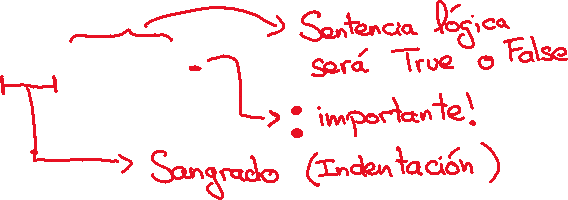 Sentencia lógica
será True o False
: importante!
Sangrado (Indentación)